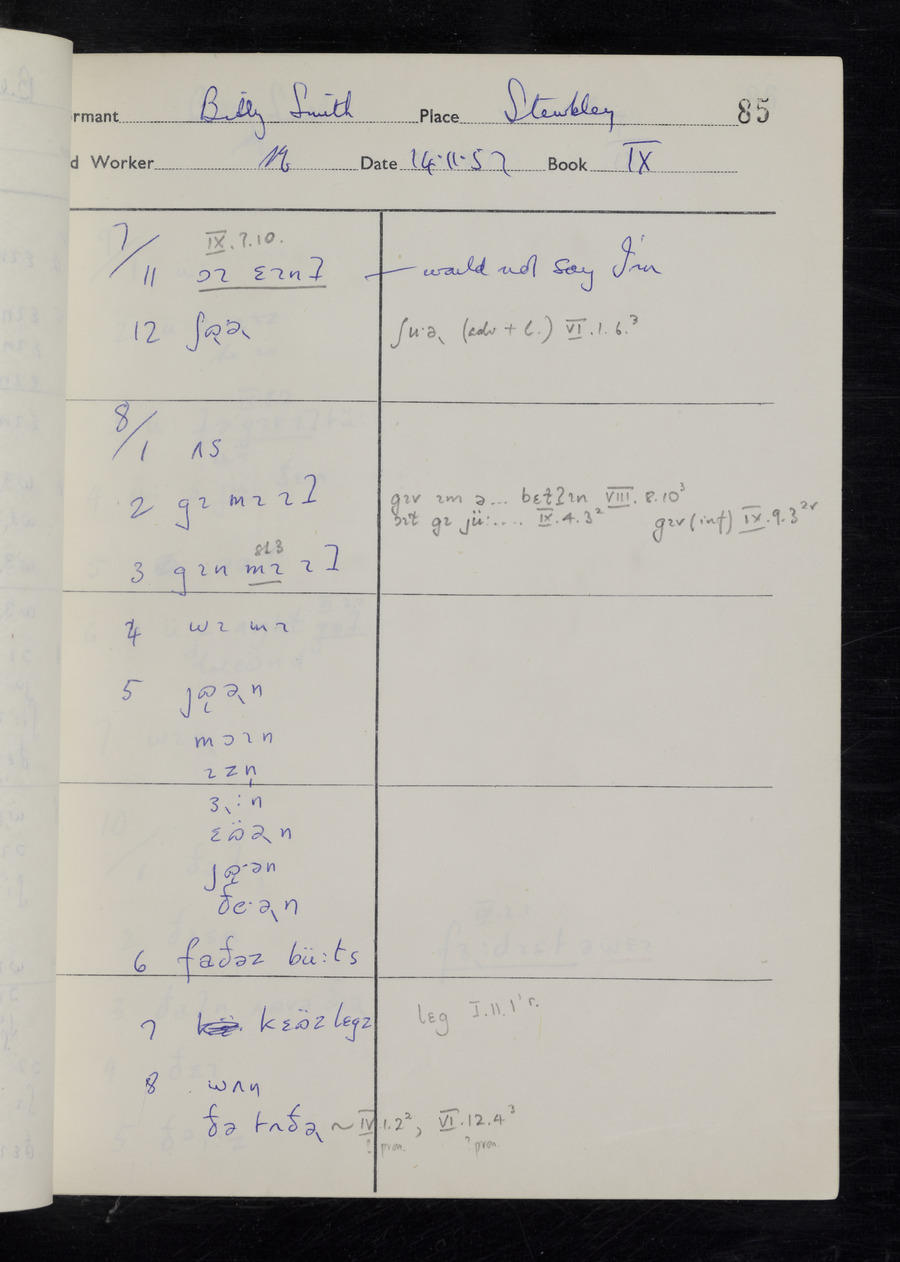 rmant Billy Smith Place Stewkley 85
d Worker Date 14·11·57 Book IX
7/ IX.7.10.
11 ɔɪ ɛɪnʔ — would not say I'm
12 ʃɷə˞ ʃu·ə˞ (adv + l.) VI.1.6.³
8/
1 ʌs
2 gɪ mɪ ɪʔ gɪv ɪm ə... bɛtʔɪn VIII.8.10³
ɔɪt gɪ jü:.... IX.4.3² gɪv (inf) IX.9.3²ʳ
3 gɪn mɪ ɪʔ
4 wɪ mɪ
5 jɷə˞n
mɔɪn
ɪzn̩
ɜ˞:n
ɛöə˞n
jɷ·ən
ðe·ə˞n
6 faðəz bü:ts
7 kɛözlegz leg I.11.1'r.
8 wʌn
ðə tʌðə˞ ~ IV.1.2², VI.12.4³
? pron. ? pron.